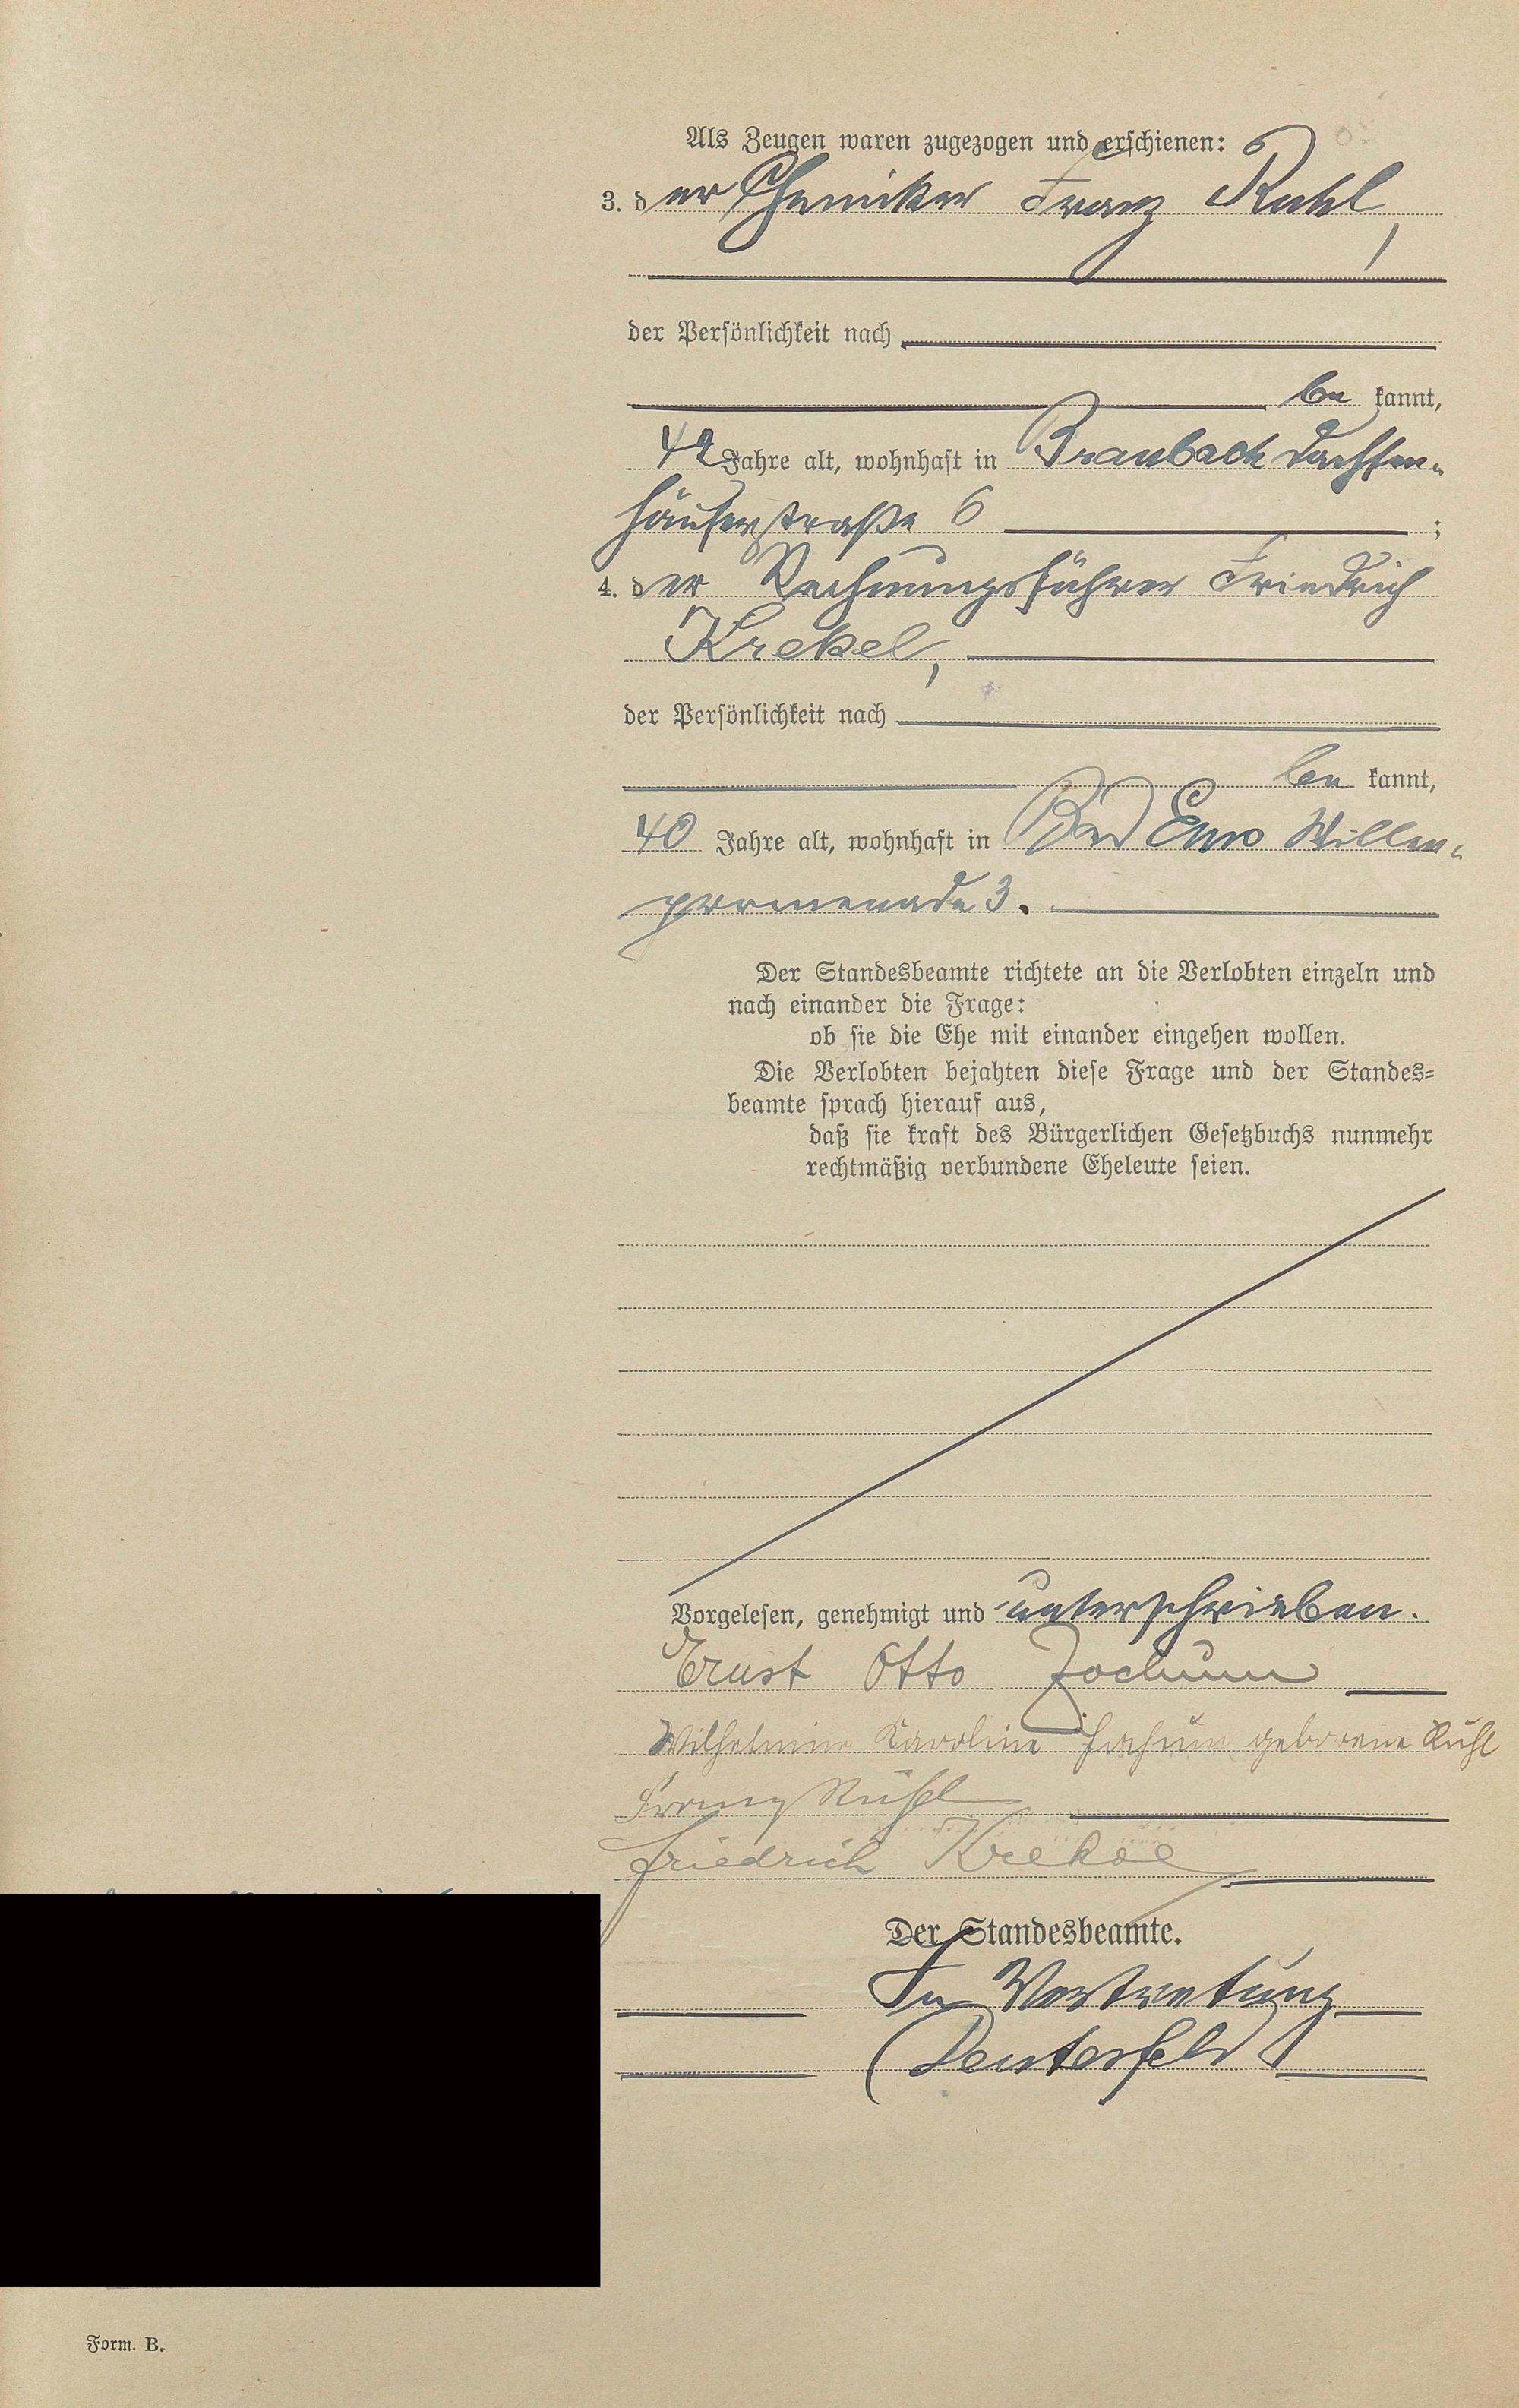 Als Zeugen waren zugezogen und erschienen:
3. der Chemiker Franz Ruhl,
der Persönlichkeit nach
be kannt,
42 Jahre alt, wohnhaft in Braubach Dachsen-
häuserstraße 6 ;
4. der Rechnungsführer Friedrich
Krekel,
der Persönlichkeit nach
be kannt,
40 Jahre alt, wohnhaft in Bad Ems Villen-
promenade 3.
Der Standesbeamte richtete an die Verlobten einzeln und
nach einander die Frage:
ob sie die Ehe mit einander eingehen wollen.
Die Verlobten bejahten diese Frage und der Standes-
beamte sprach hierauf aus,
daß sie kraft des Bürgerlichen Gesetzbuchs nunmehr
rechtmäßig verbundene Eheleute seien.
Vorgelesen, genehmigt und unterschrieben.
Ernst Otto Jochum
Wilhelmine Karoline Jochum geborene Ruhl
Franz Ruhl
Friedrich Krekel
Der Standesbeamte.
In Vertretung
Form. B.